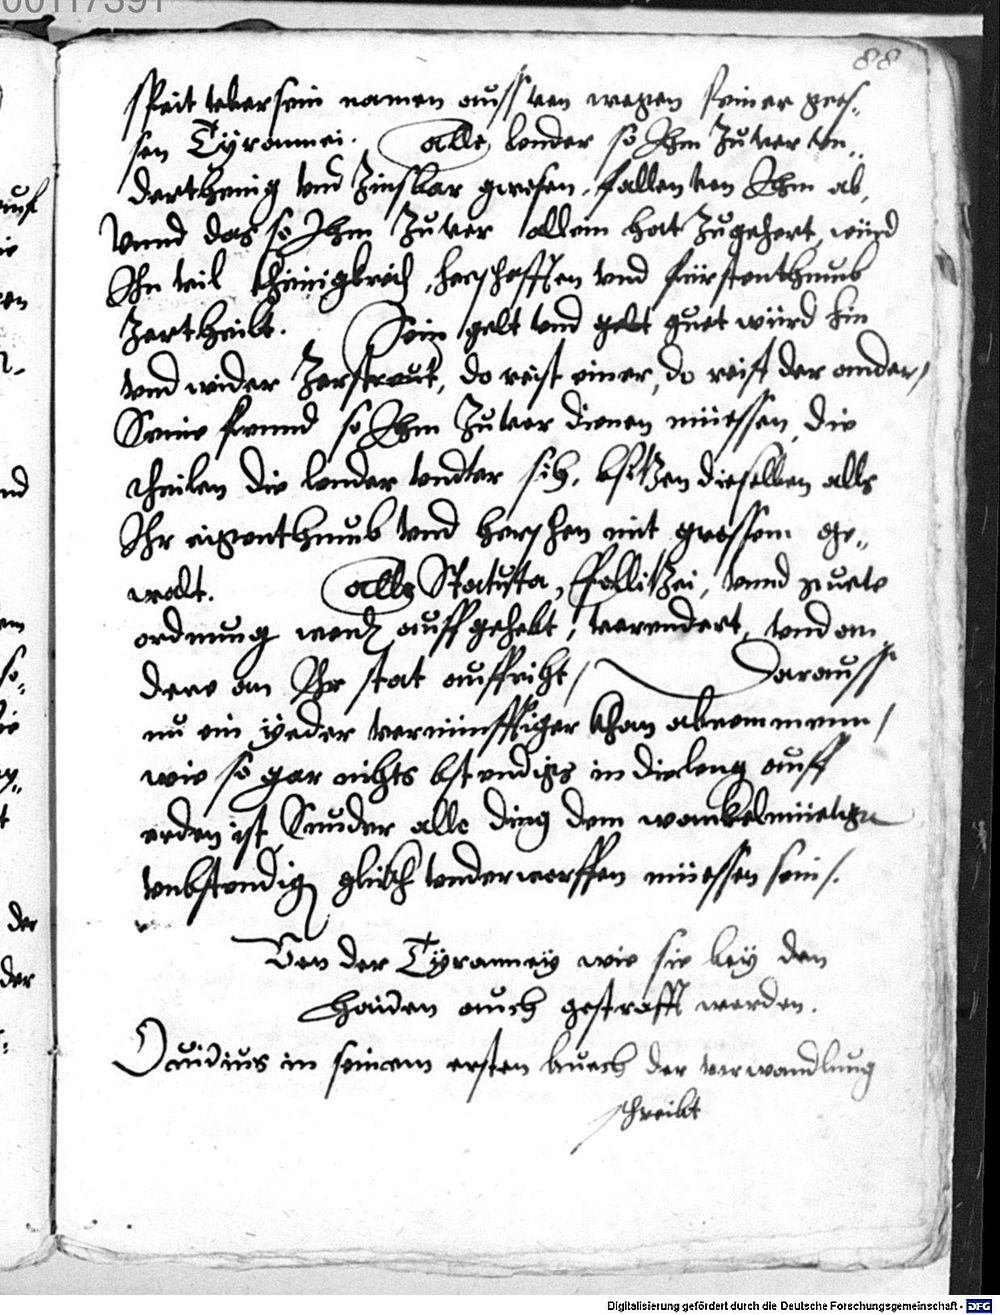 00117391
88
speit uber sein namen auss von wegen seiner gros-
sen Tyrannei. Alle lender so Ihm zuuor vn-
derthenig vnd Zinsbar gwesen, fallen von Ihm ab,
Vnnd das so Ihm zuuor allein hat zugehert, würd
Ihn teil khönigkreich, herschafften vnd fürstenthumb
Zertheilt. Sein gelt vnd guet würd hin
vnd wider Zerstreut, do reist einer, do reist der ander,
Seine freund so Ihm zuuor dienen müessen, die
theilen die lender vndter sich, besitzen dieselben alls
Ihr aigenthumb vnd herschen mit grossem ge-
walt. Alle Statuta, Pollitzei, vnnd guete
ordnung werden auffgehebt, verendert, vnd an
dere an Ihr stat auffricht / Darauss
nu ein yeder vernünfftiger khan abnemmenn /
wie so gar nichts bstendigs in die leng auff
erden ist, Sunder alle ding dem wanckelmüetigen
vnbstendigen glückh vnderworffen müessen sein /.
Von der Tyranney wie sie bey den
Haiden auch gestrafft worden.
Ouidius in seinem ersten buech der verwandlung
schreibt
Digitalisierung gefördert durch die Deutsche Forschungsgemeinschaft - DFG